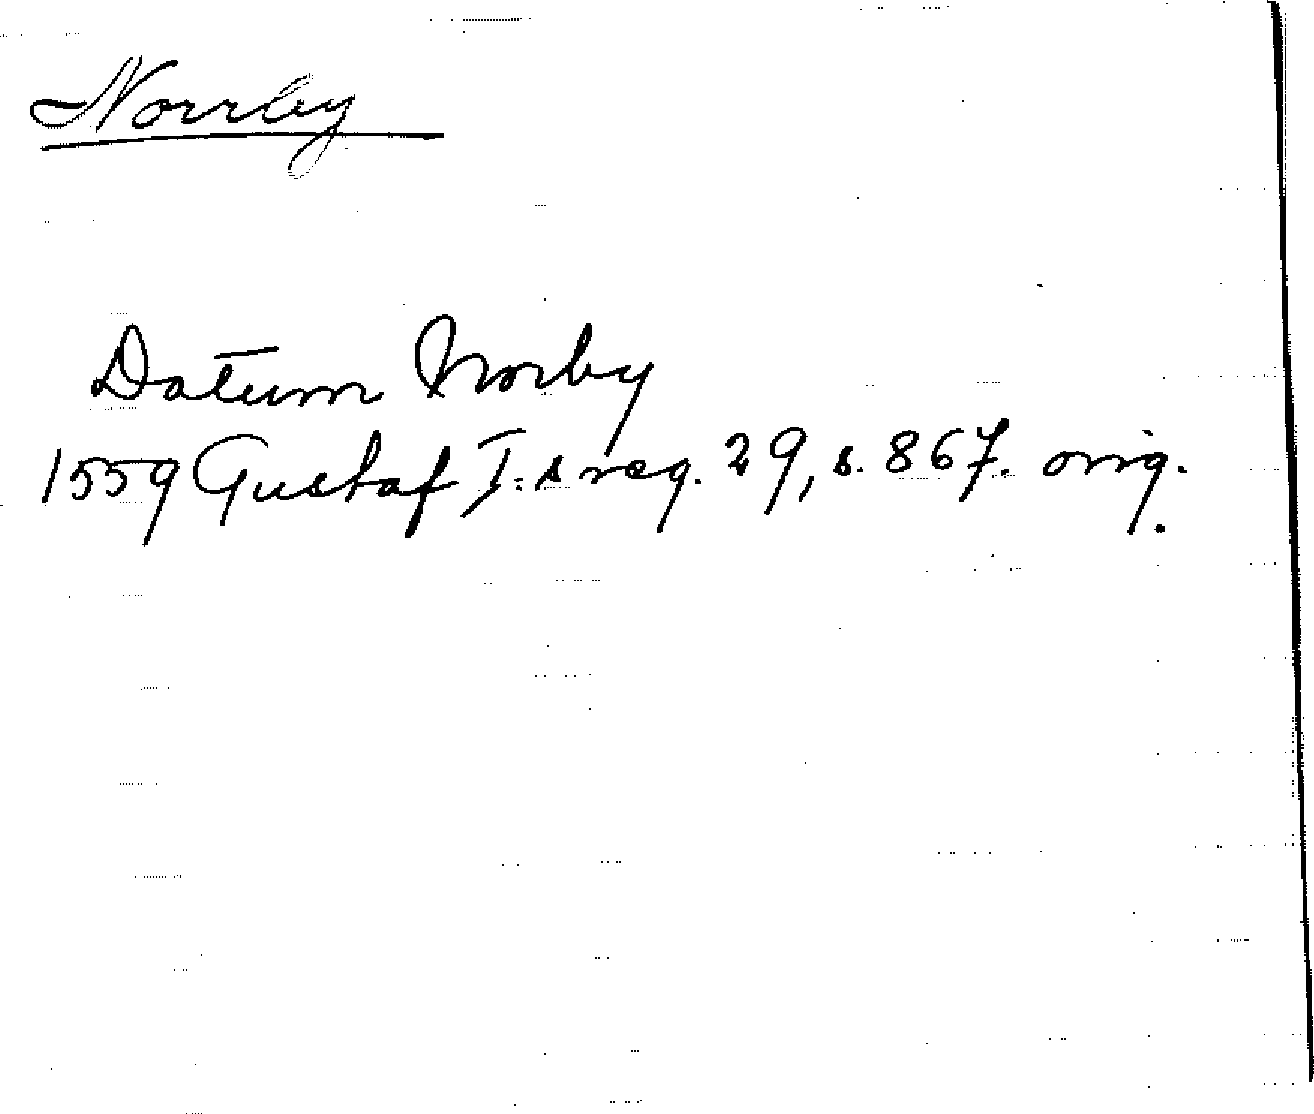 Norrby
Datum Norby
1559 Gustaf I:s reg. 29, s. 867. orig.